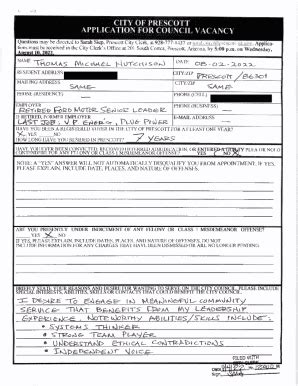 CITY OF PRESCOTT
APPLICATION FOR COUNCIL VACANCY
Questions may be directed to Sarah Siep, Prescott City Clerk, at 928-777-1437 or
tions must be received in the City Clerk's Office at 201 South Cortez, Prescott, Arizona, by 5:00 p.m. on Wednesday,
August 10, 2022.
NAME THOMAS MICHAEL HUTCHISON DATE 08-02-2022
RESIDENT ADDRESS CITY/ZIP PRESCOTT / 86301
MAILING ADDRESS SAME CITY/ZIP SAME
PHONE (RESIDENCE) PHONE (CELL)
EMPLOYER RETIRED FORD MOTOR SENIOR LEADER PHONE (BUSINESS)
IF RETIRED, FORMER EMPLOYER LAST JOB: V.P. ENGR'G, PLUG POWER E-MAIL ADDRESS
HAVE YOU BEEN A REGISTERED VOTER IN THE CITY OF PRESCOTT FOR AT LEAST ONE YEAR?
X YES NO
HOW LONG HAVE YOU RESIDED IN PRESCOTT? 7 YEARS
HAVE YOU EVER BEEN CONVICTED, RECEIVED DEFERRED ADJUDICATION OR ENTERED GUILTY PLEA OR NOLO
CONTENDERE FOR ANY FELONY OR CLASS 1 MISDEMEANOR OFFENSE? YES X NO
NOTE: A "YES" ANSWER WILL NOT AUTOMATICALLY DISQUALIFY YOU FROM APPOINTMENT. IF YES,
PLEASE EXPLAIN, INCLUDE DATE, PLACES, AND NATURE OF OFFENSES.
ARE YOU PRESENTLY UNDER INDICTMENT OF ANY FELONY OR CLASS 1 MISDEMEANOR OFFENSE?
YES X NO
IF YES, PLEASE EXPLAIN, INCLUDE DATES, PLACES, AND NATURE OF OFFENSES. DO NOT
INCLUDE INFORMATION FOR ANY CHARGES THAT HAVE BEEN DISMISSED OR ARE NO LONGER PENDING.
BRIEFLY STATE YOUR REASONS AND DESIRE FOR WANTING TO SERVE ON THE CITY COUNCIL. PLEASE INCLUDE
SPECIAL INTERESTS, ABILITIES, SKILLS OR CONTACTS THAT COULD BENEFIT THE CITY COUNCIL.
I DESIRE TO ENGAGE IN MEANINGFUL COMMUNITY
SERVICE THAT BENEFITS FROM MY LEADERSHIP
EXPERIENCE. NOTEWORTHY ABILITIES/SKILLS INCLUDE:
• SYSTEMS THINKER
• STRONG TEAM PLAYER
• UNDERSTAND ETHICAL CONTRADICTIONS
• INDEPENDENT VOICE
FILED WITH